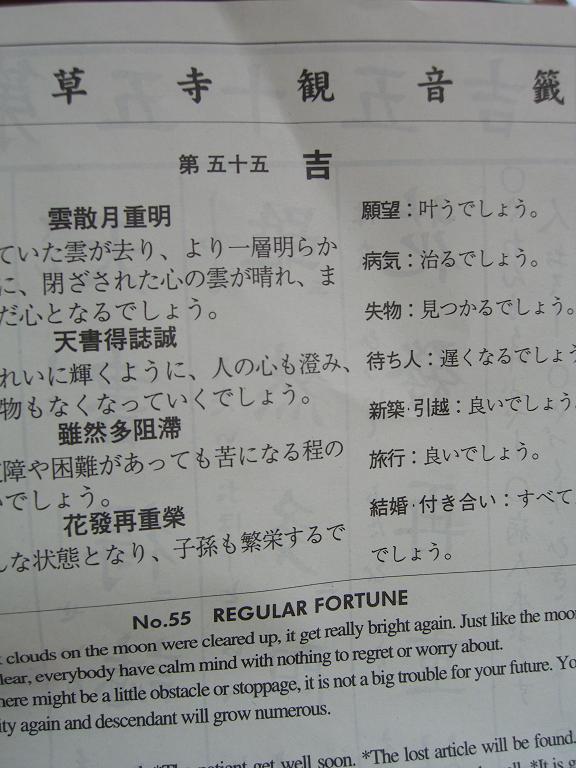 草寺観音籤
第五十五 吉
雲散月重明
ていた雲が去り、より一層明らか
に、閉ざされた心の雲が晴れ、ま
だ心となるでしょう。
天書得誌誠
れいに輝くように、人の心も澄み、
物もなくなっていくでしょう。
雖然多阻滯
障や困難があっても苦になる程の
でしょう。
花發再重榮
な状態となり、子孫も繁栄するで
願望：叶うでしょう。
病気：治るでしょう。
失物：見つかるでしょう。
待ち人：遅くなるでしょう
新築・引越：良いでしょう。
旅行：良いでしょう。
結婚・付き合い：すべて
でしょう。
No.55 REGULAR FORTUNE
clouds on the moon were cleared up, it get really bright again. Just like the moo
lear, everybody have calm mind with nothing to regret or worry about.
here might be a little obstacle or stoppage, it is not a big trouble for your future. Yo
ity again and descendant will grow numerous.
patient get well soon. *The lost article will be found.